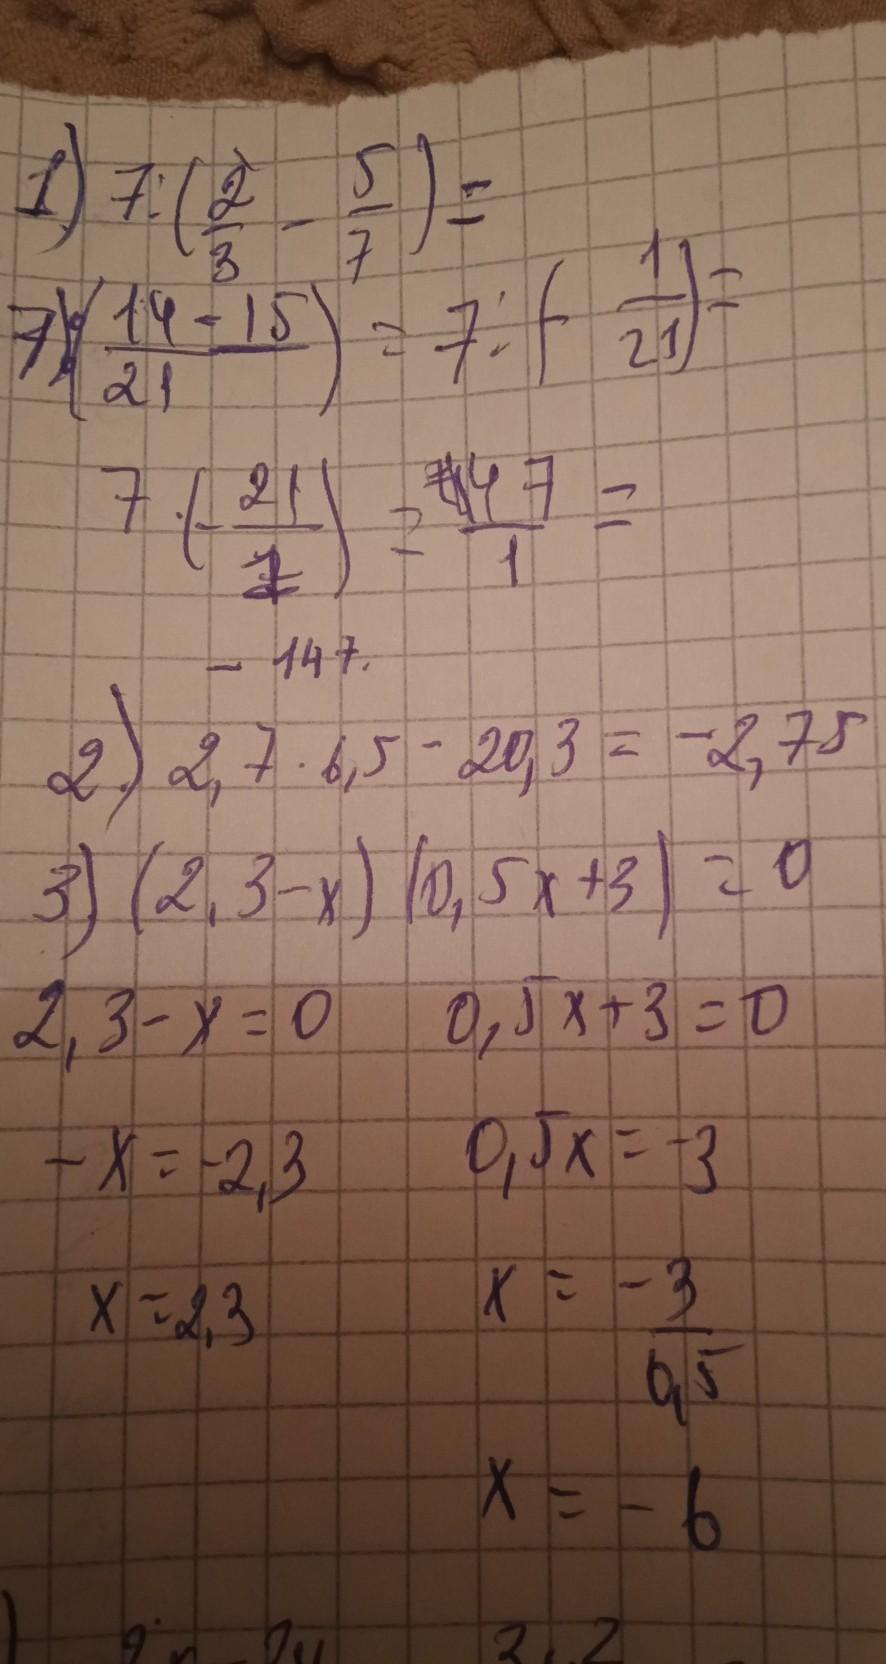 1) 7:(2/3 - 5/7) =
7:((14-15)/21) = 7:(-1/21) =
7·(-21/1) = 147/1 =
- 147.
2) 2,7 · 6,5 - 20,3 = -2,75
3) (2,3-x) (0,5x+3) = 0
2,3-x=0 0,5x+3=0
-x=-2,3 0,5x=-3
x=2,3 x = -3/0,5
x = -6